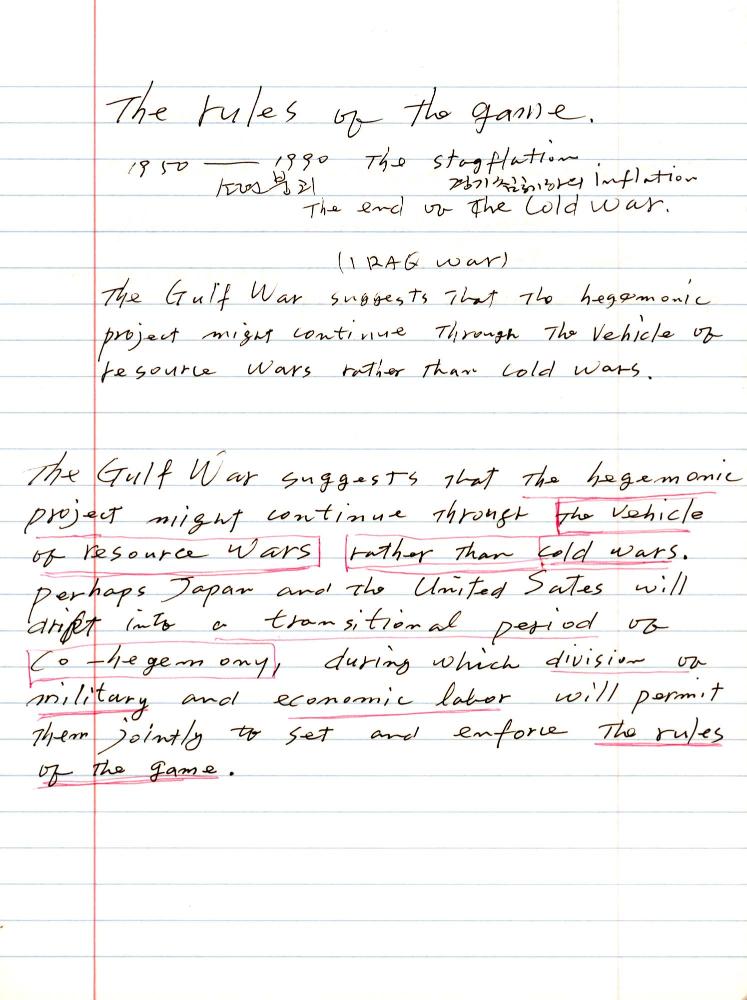 The rules of the game.
1950 — 1990 The stagflation
붕괴 Inflation
The end of The Cold War.
(IRAQ war)
The Gulf War suggests That The hegemonic
project might continue Through The Vehicle of
resource Wars rather Than cold Wars.
The Gulf War suggests That The hegemonic
project might continue Through The Vehicle
of resource Wars rather Than cold wars.
perhaps Japan and The United Sates will
drift into a transitional period of
Co-hegemony, during which division of
military and economic labor will permit
Them jointly to set and enforce The rules
of The game.